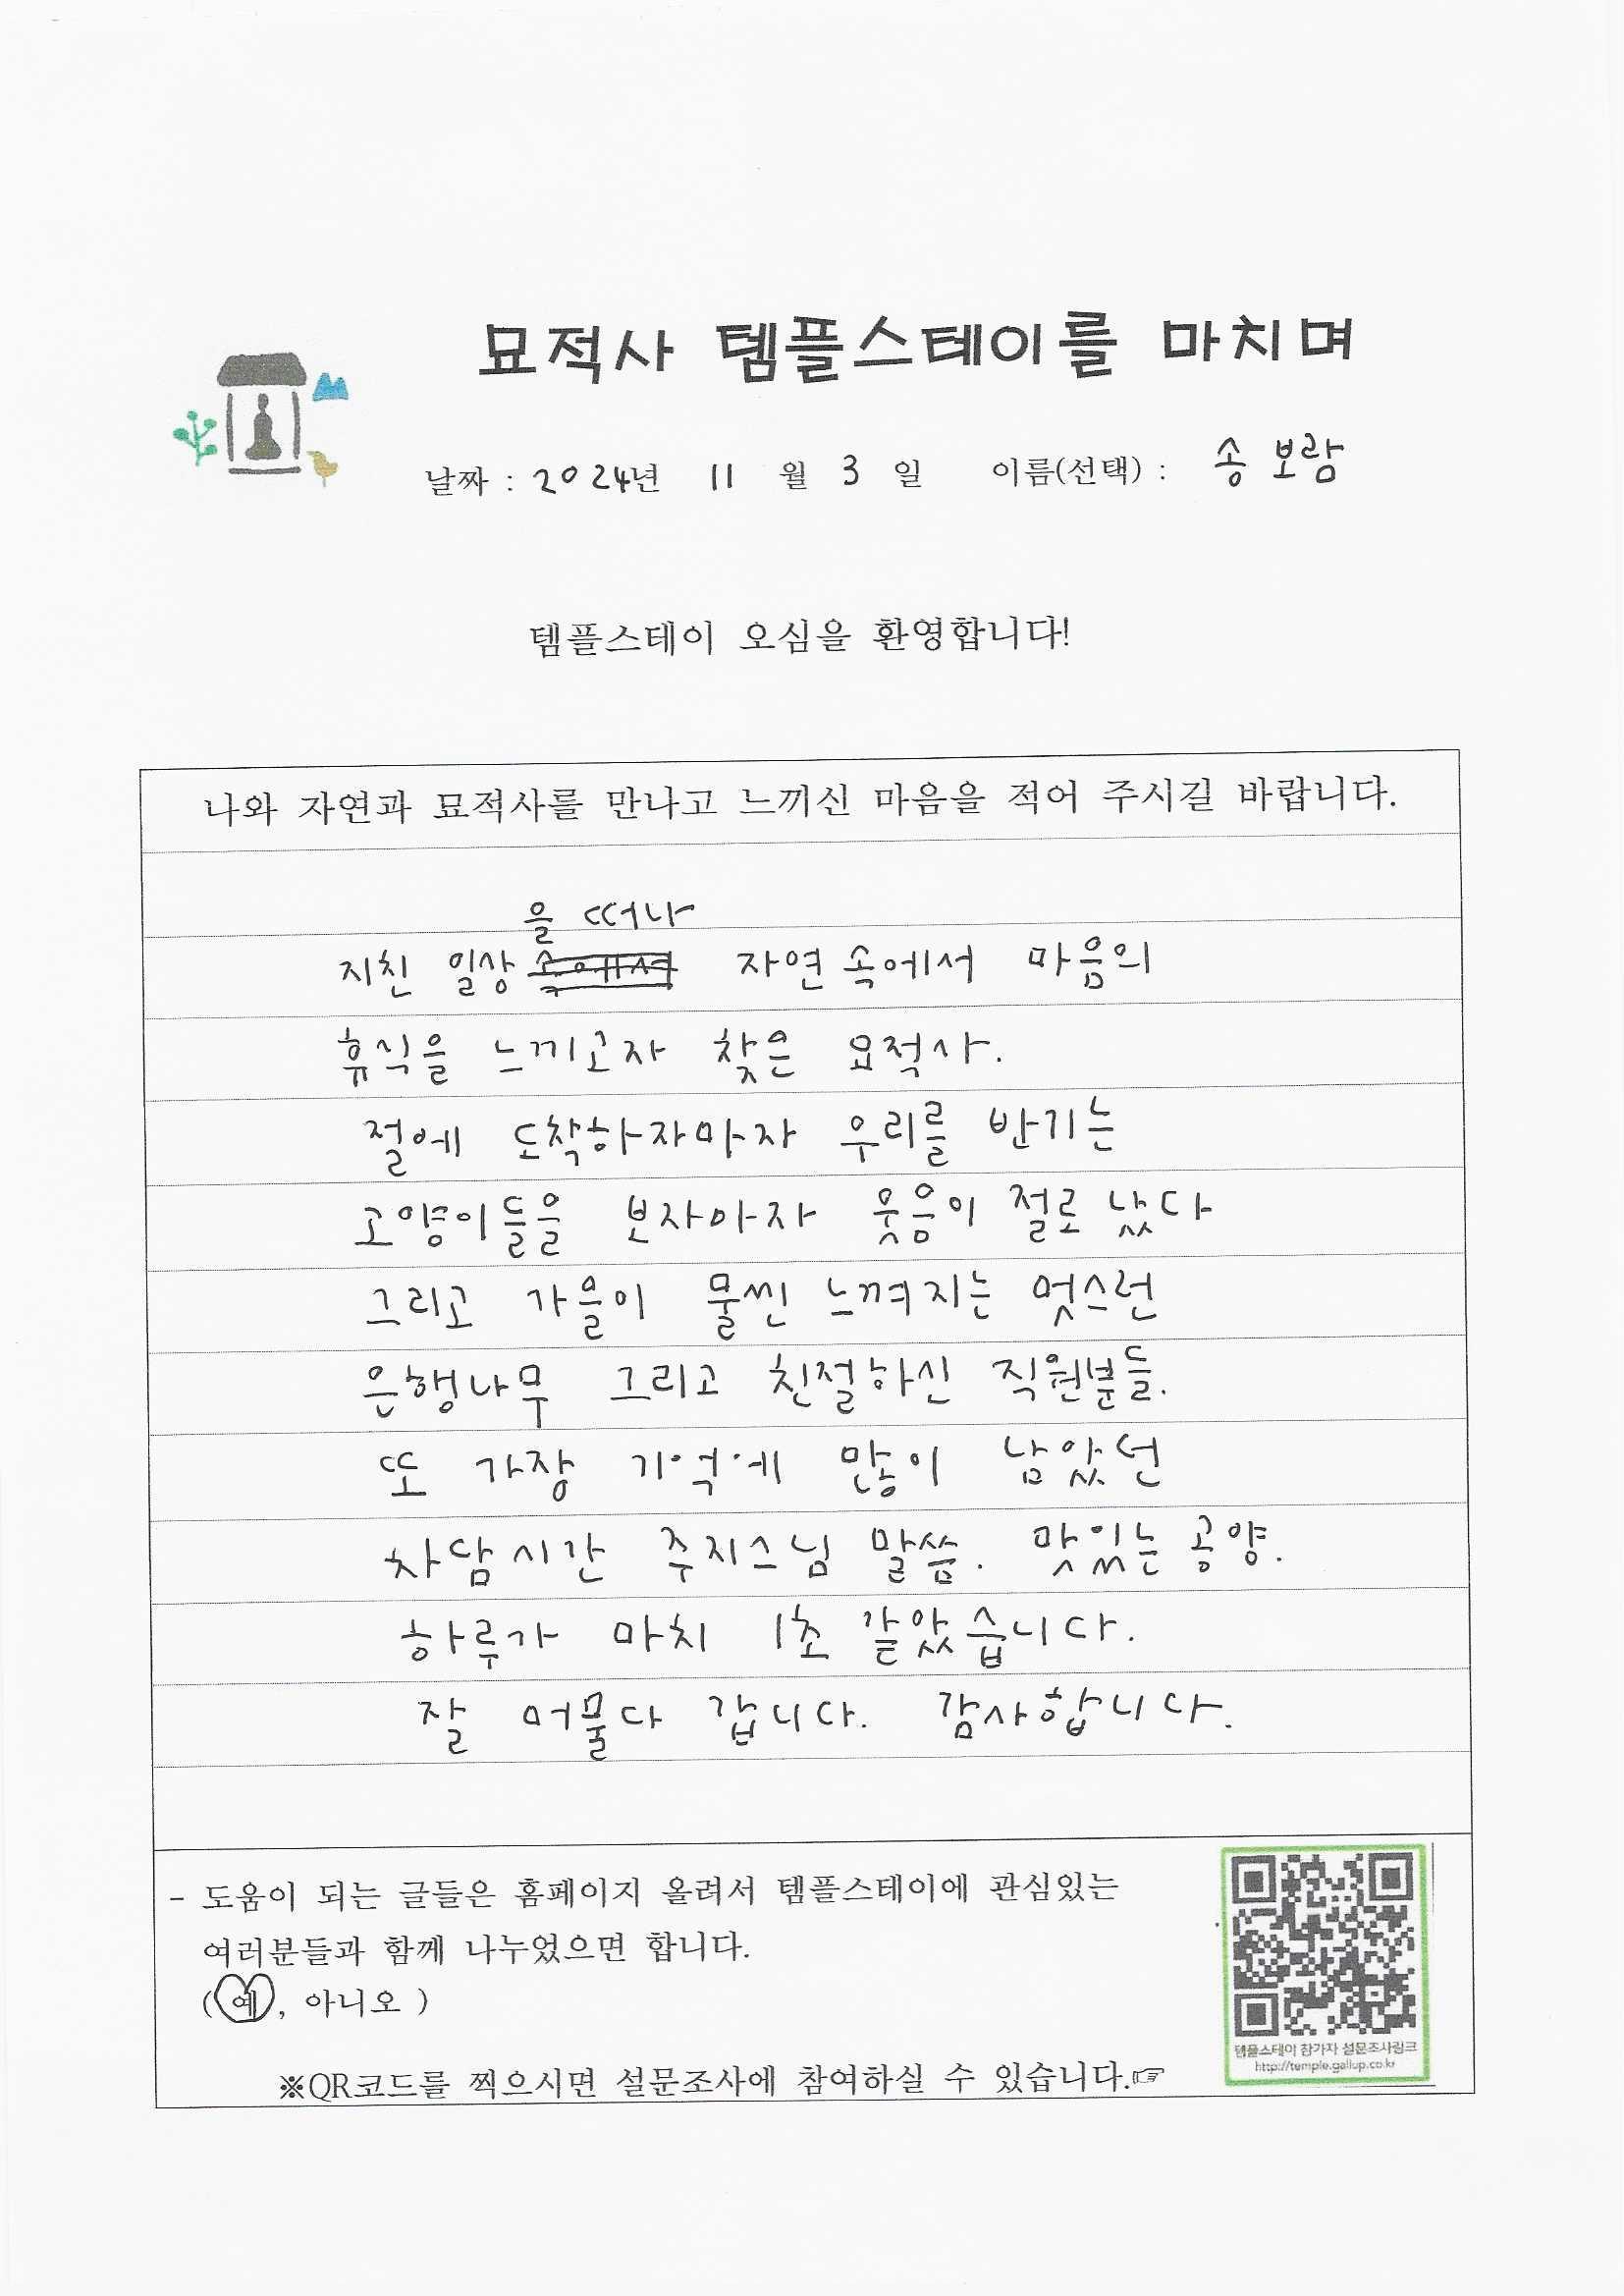 묘적사 템플스테이를 마치며
날짜 : 2024년 11 월 3 일 이름(선택) : 송보람
템플스테이 오심을 환영합니다!
나와 자연과 묘적사를 만나고 느끼신 마음을 적어 주시길 바랍니다.
을 떠나
지친 일상 속에서 자연 속에서 마음의
휴식을 느끼고자 찾은 묘적사.
절에 도착하자마자 우리를 반기는
고양이들을 보자마자 웃음이 절로 났다
그리고 가을이 물씬 느껴지는 멋스런
은행나무 그리고 친절하신 직원분들.
또 가장 기억에 많이 남았던
차담시간 주지스님 말씀. 맛있는 공양.
하루가 마치 1초 같았습니다.
잘 머물다 갑니다. 감사합니다.
- 도움이 되는 글들은 홈페이지 올려서 템플스테이에 관심있는
여러분들과 함께 나누었으면 합니다.
( 예, 아니오 )
템플스테이 참가자 설문조사링크
http://temple.gallup.co.kr
※QR코드를 찍으시면 설문조사에 참여하실 수 있습니다.☞